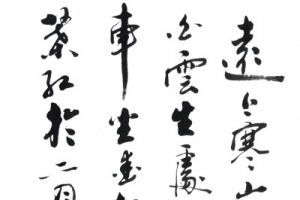 遠上寒山
白雲生處
車坐愛
葉紅於二月